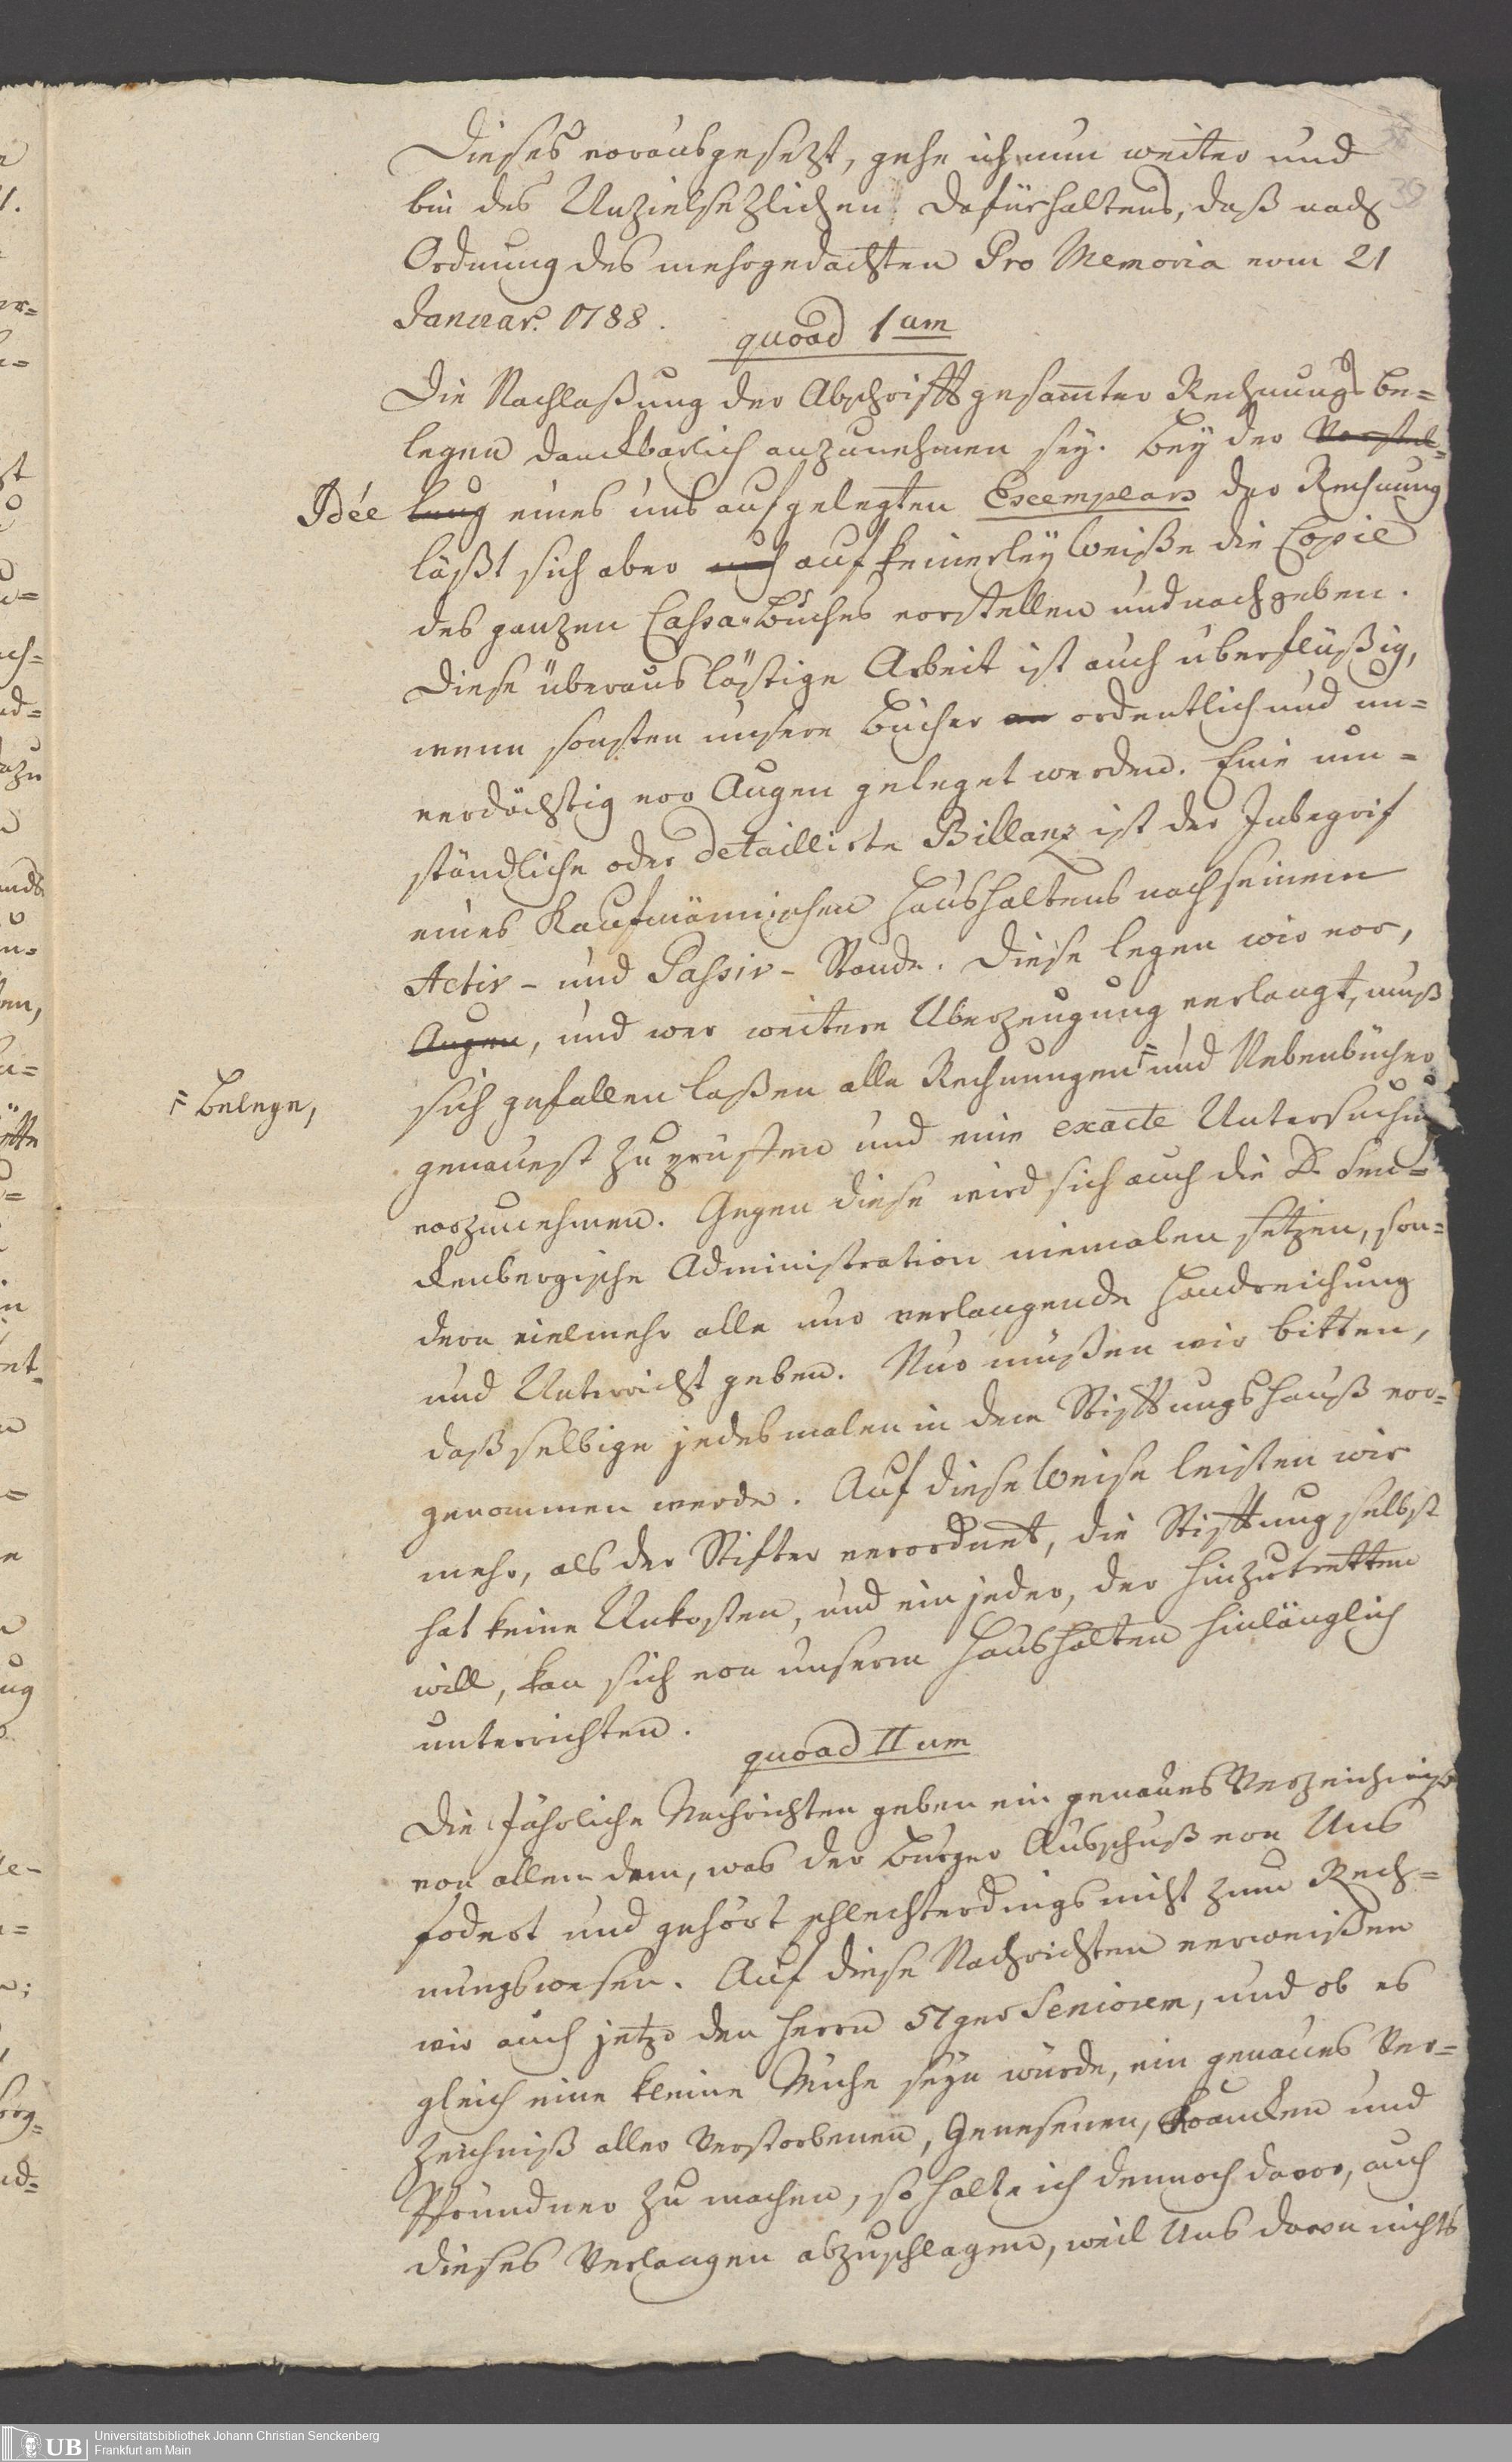 Dieses vorausgesezt, gehe ich nun weiter und
bin des Unzielsezlichen Dafürhaltens, daß nach
Ordnung des mehrgedachten Pro Memoria vom 21
Januar. 1788.
quoad 1um
Die Nachlaßung der Abschrifft gesamter Rechnungs be=
legen danckbarlich anzunehmen sey. Bey der Vorstel=
Idée lung eines uns aufgelegten Exemplars der Rechnung
läßt sich aber auch auf keinerley Weiße die Copie
des ganzen Cassa-Buches vorstellen und nachgeben.
Diese überaus lästige Arbeit ist auch überflüßig,
wenn sonsten unsere Bücher ordentlich und un=
verdächtig vor Augen geleget werden. Eine um=
ständliche oder detaillirte Billanz ist der Inbegrif
eines Kaufmännischen Haushaltens nach seinem
Activ- und Passiv-Stande. Diese legen wir vor,
Augen, und wer weitere Uberzeugung verlangt, muß
sich gefallen laßen alle Rechnungen und Nebenbücher
Belege,
genauest zu prüffen und eine exacte Untersuchung
vorzunehmen. Gegen diese wird sich auch die D. Sen=
ckenbergische Administration niemalen setzen, son=
dern vielmehr alle nur verlangende Handreichung
und Unterricht geben. Nur müßen wir bitten,
daß selbige jedesmalen in dem Stifftungshauß vor=
genommen werde. Auf diese Weise leisten wir
mehr, als der Stifter verordnet, die Stifftung selbst
hat keine Unkosten, und ein jeder, der hinzutretten
will, kan sich von unserm Haushalten hinlänglich
unterrichten.
quoad IIum
Die Jährliche Nachrichten geben ein genaues Verzeichniß
von allem dem, was der Burger Ausschuß von Uns
fodert und gehört schlechterdings nicht zum Rech=
nungswesen. Auf diese Nachrichten verweißen
wir auch jetzo den Herrn 51ger Seniorem, und ob es
gleich eine kleine Mühe seyn würde, ein genaues Ver=
zeichniß aller Verstorbenen, Genesenen, Krancken und
Pfründner zu machen, so halte ich dennoch davor, auch
dieses Verlangen abzuschlagen, weil Uns davon nichts
Universitätsbibliothek Johann Christian Senckenberg
Frankfurt am Main
UB